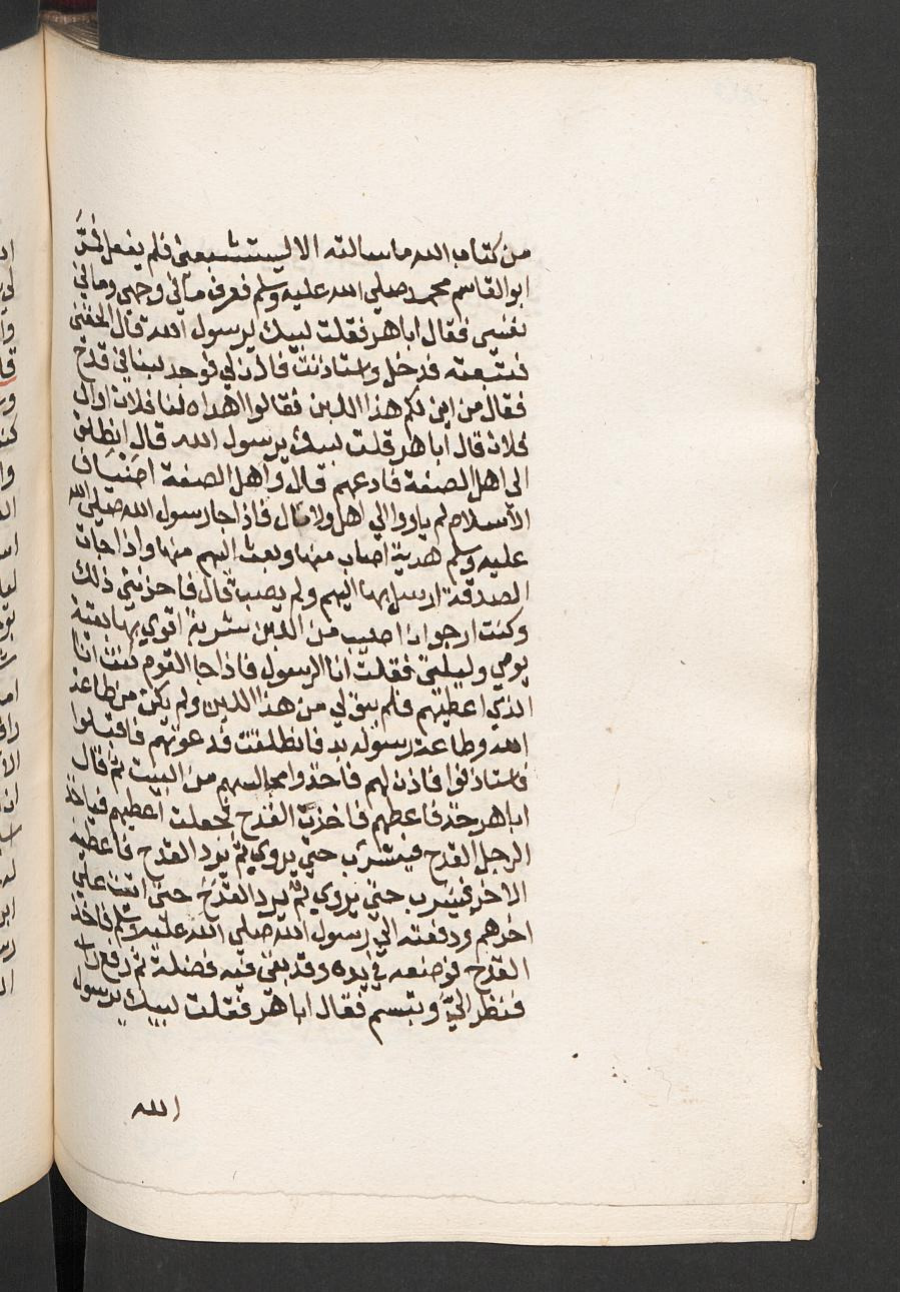 من كتاب الله ما سالته الا ليستشبعني فلم يفعل فمرَّ
ابو القاسم محمد صلي الله عليه وسلم فعرف ما في وجهي وما في
نفسي فقال ابا هر فقلت لبيك يرسول الله قال الحقني
فتبعته فدخل واستاذنت فاذن لي فوجد لبنا في قدح
فقال من اين لكم هذا اللبن فقالوا اهداه لنا فلان او ال
فلان قال ابا هر قلت لبيك يرسول الله قال انطلق
الى اهل الصفة فادعهم قال واهل الصفة اضياف
الاسلام لم ياووا الي اهل ولا مال فاذا جا رسول الله صلي الله
عليه وسلم هدية اصاب منها وبعث اليهم منها واذا جات
الصدقة ارسل بها اليهم ولم يصب قال فاحزنني ذلك
وكنت ارجوا ان اصيب من اللبن شربة اتقوي بها بقية
يومي وليلتي فقلت انا الرسول فاذا جا القوم كنت انا
الذي اعطيهم فلم يبق لي من هذا اللبن ولم يكن من طاعة
الله وطاعة رسوله بد فانطلقت فدعوتهم فاقبلوا
فاستاذنوا فاذن لهم فاخذوا مجالسهم من البيت ثم قال
ابا هر خذ فاعطهم فاخذت القدح فجعلت اعطيهم فياخذ
الرجل القدح فيشرب حتي يروي ثم يرد القدح فاعطيه
الاخر فيشرب حتي يروي ثم يرد القدح حتى اتيت علي
اخرهم ودفعته الي رسول الله صلي الله عليه وسلم فاخذ
القدح فوضعه في يده وقد بقي فيه فضلة ثم رفع راسه
فنظر اليَّ وتبسم فقال ابا هر فقلت لبيك يرسول
الله